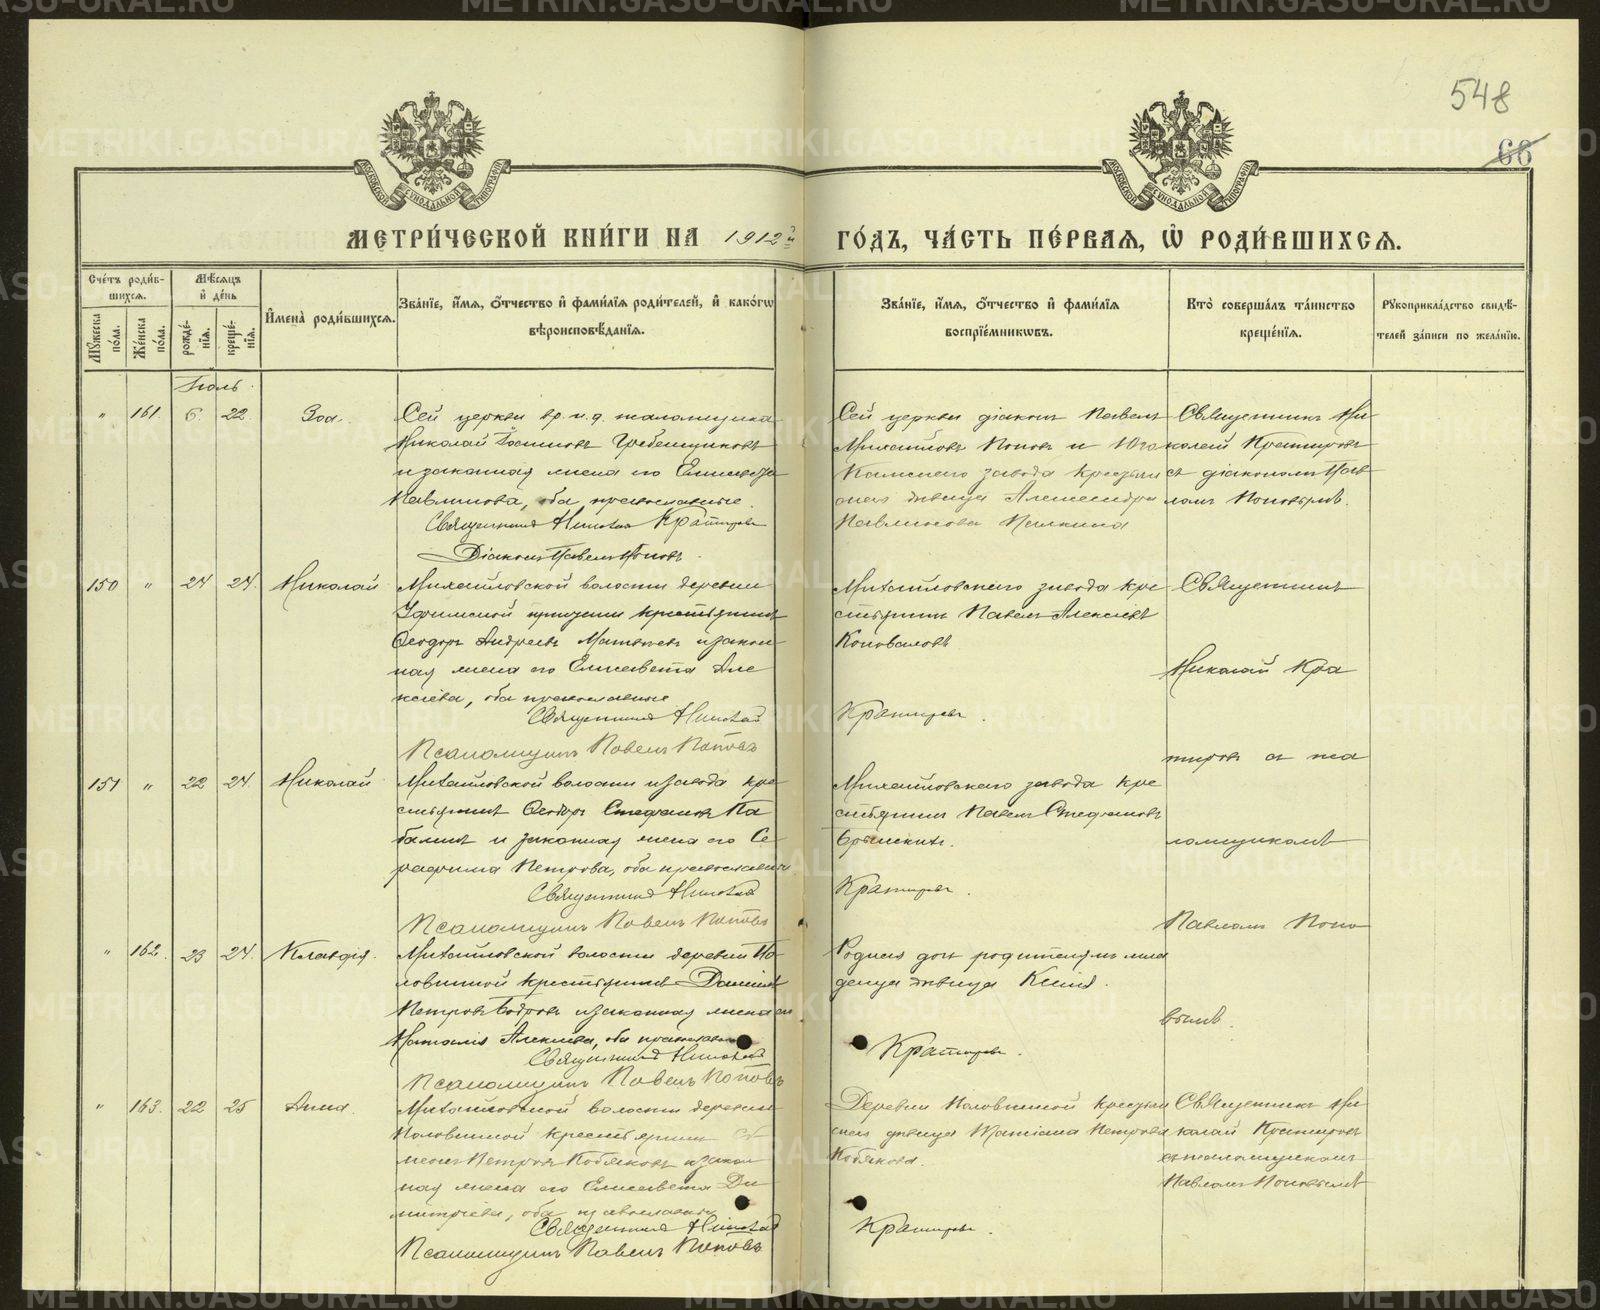 548
66
МЕТРИЧЕСКОЙ КНИГИ НА 1912й ГОДЪ, ЧАСТЬ ПЕРВАЯ, Ѽ РОДИВШИХСЯ.
Счетъ родившихся.
Мужеска пола.
Женска пола.
Мѣсяцъ и день
рожденія.
крещенія.
Имена родившихся.
Званіе, имя, отчество и фамилія родителей, и какогѡ вѣроисповѣданія.
Званіе, имя, отчество и фамилія воспріемникѡвъ.
Кто совершалъ таинство крещенія.
Рукоприкладство свидѣтелей записи по желанію.
Іюль.
" 161. 6. 22. Зоя.
Сей церкви и. д. псаломщика
Николай Гребенщиковъ
и законная жена его Елисавета
Павлинова, оба православные.
Священникъ Николай Кратировъ
Діаконъ Павелъ Поповъ.
Сей церкви діаконъ Павелъ
Михайловъ Поповъ и
Каменскаго завода
дѣвица Александра
Павлинова
Священникъ Ни-
колай Кратировъ
съ діакономъ Пав-
ломъ Поповымъ.
150 " 24 24. Николай
Михайловской волости деревни
Уфимской крестьянинъ
Ѳеодоръ Андреевъ и закон-
ная жена его Елисавета Але-
ксіева, оба православные
Священникъ Николай Кратировъ.
Псаломщикъ Павелъ Поповъ
Михайловскаго завода кре-
стьянинъ Павелъ Алексіевъ
Коноваловъ
Священникъ
Николай Кра-
тировъ съ пса-
ломщикомъ
Павломъ Попо-
вымъ.
151 " 22 24. Николай
Михайловской волости и завода кре-
стьянинъ Ѳеодоръ Стефановъ
и законная жена его Се-
рафима Петрова, оба православные
Священникъ Николай Кратировъ.
Псаломщикъ Павелъ Поповъ
Михайловскаго завода кре-
стьянинъ Павелъ Стефановъ
" 162. 23 24. Клавдія.
Михайловской волости деревни По-
ловинной крестьянинъ
Петровъ Бобровъ и законная жена его
Алексіева, оба православные
Священникъ Николай Кратировъ.
Псаломщикъ Павелъ Поповъ
Родная дочь родителямъ мла-
денца дѣвица
" 163. 22 25 Анна.
Михайловской волости деревни
Половинной крестьянинъ
Петровъ Кобяковъ и закон-
ная жена его Елисавета Ди-
митріева, оба православные
Священникъ Николай Кратировъ.
Псаломщикъ Павелъ Поповъ
Деревни Половинной крестьян-
ская дѣвица Татіана Петрова
Кобякова.
Священникъ Ни-
колай Кратировъ
съ псаломщикомъ
Павломъ Поповымъ
METRIKI.GASO-URAL.RU